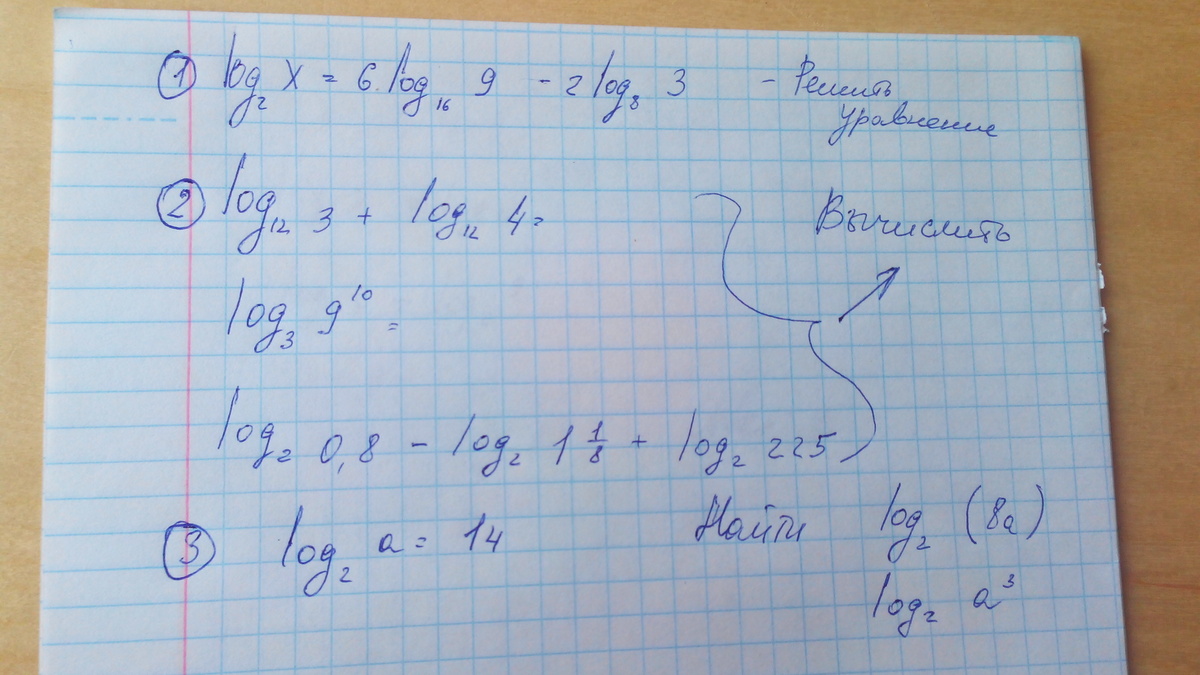 ① log₂ x = 6 · log₁₆ 9 - 2 log₈ 3 - Решить
уравнение
② log₁₂ 3 + log₁₂ 4 =
Вычислить
log₃ 9¹⁰ =
log₂ 0,8 - log₂ 1 1/8 + log₂ 225
③ log₂ a = 14 Найти log₂ (8a)
log₂ a³